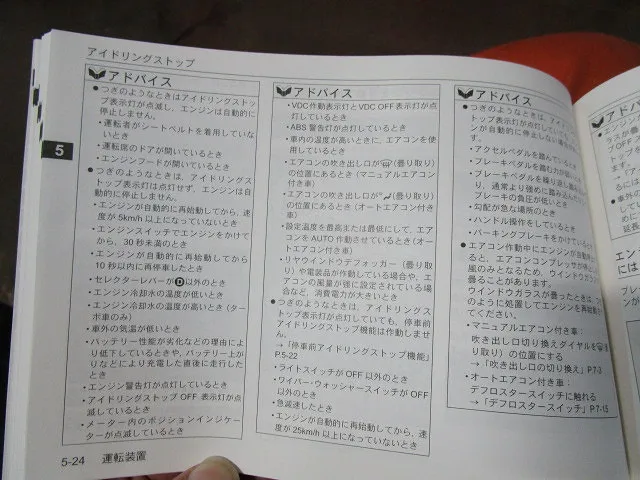 アイドリングストップ
アドバイス
●つぎのようなときはアイドリングストッ
プ表示灯が点滅し、エンジンは自動的に
停止しません。
・運転者がシートベルトを着用していな
いとき
・運転席のドアが開いているとき
・エンジンフードが開いているとき
●つぎのようなときは、アイドリングス
トップ表示灯は点灯せず、エンジンは自
動的に停止しません。
・エンジンが自動的に再始動してから、車
速が5km/h以上になっていないとき
・エンジンスイッチでエンジンをかけて
から、30秒未満のとき
・エンジンが自動的に再始動してから
10秒以内に再停車したとき
・セレクターレバーがD以外のとき
・エンジン冷却水の温度が低いとき
・エンジン冷却水の温度が高いとき（ター
ボ車のみ）
・車外の気温が低いとき
・バッテリー性能が劣化などの理由によ
り低下しているときや、バッテリー上が
りなどにより充電した直後に走行した
とき
・エンジン警告灯が点灯しているとき
・アイドリングストップOFF表示灯が点
滅しているとき
・メーター内のポジションインジケー
ターが点滅しているとき
5
5-24 運転装置
アドバイス
・VDC作動表示灯とVDC OFF表示灯が点
灯しているとき
・ABS警告灯が点灯しているとき
・車内の温度が高いときに、エアコンを使
用しているとき
・エアコンの吹き出し口が（曇り取り）
の位置にあるとき（マニュアルエアコン
付き車）
・エアコンの吹き出し口が（曇り取り）
の位置にあるとき（オートエアコン付き
車）
・設定温度を最高または最低にして、エア
コンをAUTO作動させているとき（オー
トエアコン付き車）
・リヤウインドウデフォッガー（曇り取
り）や電装品が作動している場合や、エ
アコンの風量が強に設定されている場
合など、消費電力が大きいとき
●つぎのようなときは、アイドリングス
トップ表示灯が点灯していても、停車前
アイドリングストップ機能は作動しませ
ん。
→「停車前アイドリングストップ機能」
P.5-22
・ライトスイッチがOFF以外のとき
・ワイパー・ウォッシャースイッチがOFF
以外のとき
・急減速したとき
・エンジンが自動的に再始動してから、車
速が25km/h以上になっていないとき
アドバイス
●つぎのようなときは、アイドリングス
トップ表示灯が点灯していても
ンが自動的に停止しない場合
す。
・アクセルペダルを踏んでいるとき
・ブレーキペダルを踏む力が弱いとき
・ブレーキペダルを繰り返し踏
り、通常より強めに踏み込んだ
ブレーキの負圧が低いとき
・勾配が急な場所のとき
・ハンドル操作をしているとき
・パーキングブレーキをかけているとき
●エアコン作動中にエンジンが自動停止
ると、エアコンコンプレッサが停止し
風のみとなるため、ウインドウガラス
曇ることがあります。
ウインドウガラスが曇ったときは、つぎ
のように処置してエンジンを再始動
てください。
・マニュアルエアコン付き車：
吹き出し口切り換えダイヤルを（曇
り取り）の位置にする
→「吹き出し口の切り換え」P.7-3
・オートエアコン付き車：
デフロスタースイッチに触れる
→「デフロスタースイッチ」P.7-15